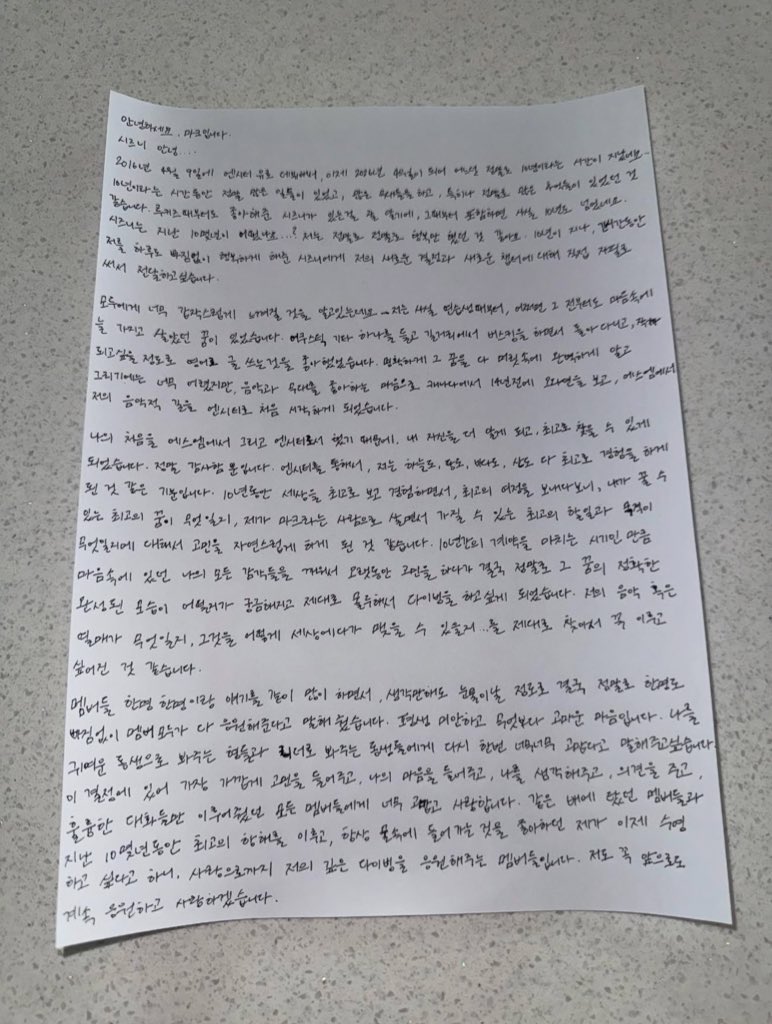 안녕하세요, 마크입니다.
시즈니 안녕...
2016년 4월 9일에 엔시티 유로 데뷔해서, 이제 2026년 4월이 되어 어느덧 정말로 10년이라는 시간이 지났네요..
10년이라는 시간동안 정말 많은 일들이 있었고, 많은 무대들을 하고, 특히나 정말로 많은 추억들이 있었던 것
같습니다. 루키즈때부터도 좋아해준 시즈니가 있는걸 잘 알기에, 그때부터 포함하면 사실 10년도 넘었네요.
시즈니는 지난 10몇년이 어땠나요...? 저는 정말로 정말로 행복만 했던 것 같아요. 10년이 지나, 긴시간동안
저를 하루도 빠짐없이 행복하게 해준 시즈니에게 저의 새로운 결정과 새로운 챕터에 대해 직접 자필로
써서 전달하고싶습니다.
모두에게 너무 갑작스럽게 느껴질 것을 알고있는데요.. 저는 사실 연습생때부터, 어쩌면 그 전부터도 마음속에
늘 가지고 살았던 꿈이 있었습니다. 어쿠스틱 기타 하나를 들고 길거리에서 버스킹을 하면서 돌아다니고, 작가
되고싶을 정도로 영어로 글 쓰는것을 좋아했었습니다. 명확하게 그 꿈을 다 머릿속에 완벽하게 알고
그리기에는 너무 어렸지만, 음악과 무대를 좋아하는 마음으로 캐나다에서 14년전에 오디션을 보고, 에스엠에서
저의 음악적 길을 엔시티로 처음 시작하게 되었습니다.
나의 처음을 에스엠에서 그리고 엔시티로서 했기 때문에, 내 자신을 더 알게 되고, 최고로 찾을 수 있게
되었습니다. 정말 감사할 뿐입니다. 엔시티를 통해서, 저는 하늘도, 땅도, 바다도, 산도 다 최고로 경험을 하게
된 것 같은 기분입니다. 10년동안 세상을 최고로 보고 경험하면서, 최고의 여정을 보내다보니, 내가 꿀 수
있는 최고의 꿈이 무엇일지, 제가 마크라는 사람으로 살면서 가질 수 있는 최고의 할일과 목적이
무엇일지에 대해서 고민을 자연스럽게 하게 된 것 같습니다. 10년간의 계약을 마치는 시기인 만큼
마음속에 있던 나의 모든 감각들을 깨워서 오랫동안 고민을 하다가 결국 정말로 그 꿈의 정확한
완성된 모습이 어떨지가 궁금해지고 제대로 몰두해서 다이빙을 하고싶게 되었습니다. 저의 음악 혹은
열매가 무엇일지, 그것을 어떻게 세상에다가 맺을 수 있을지..를 제대로 찾아서 꼭 이루고
싶어진 것 같습니다.
멤버들 한명 한명이랑 얘기를 같이 많이 하면서, 생각만해도 눈물이날 정도로 결국 정말로 한명도
빠짐없이 멤버 모두가 다 응원해준다고 말해 줬습니다. 평생 미안하고 무엇보다 고마운 마음입니다. 나를
귀여운 동생으로 봐주는 형들과 리더로 봐주는 동생들에게 다시 한번 너무너무 고맙다고 말해주고싶습니다.
이 결정에 있어 가장 가깝게 고민을 들어주고, 나의 마음을 들어주고, 나를 생각해주고, 의견을 주고,
훌륭한 대화들만 이루어줬던 모든 멤버들에게 너무 고맙고 사랑합니다. 같은 배에 탔던 멤버들과
지난 10몇년동안 최고의 항해를 이루고, 항상 물속에 들어가는 것을 좋아하던 제가 이제 수영
하고 싶다고 하니, 사랑으로까지 저의 깊은 다이빙을 응원해주는 멤버들입니다. 저도 꼭 앞으로도
계속 응원하고 사랑하겠습니다.